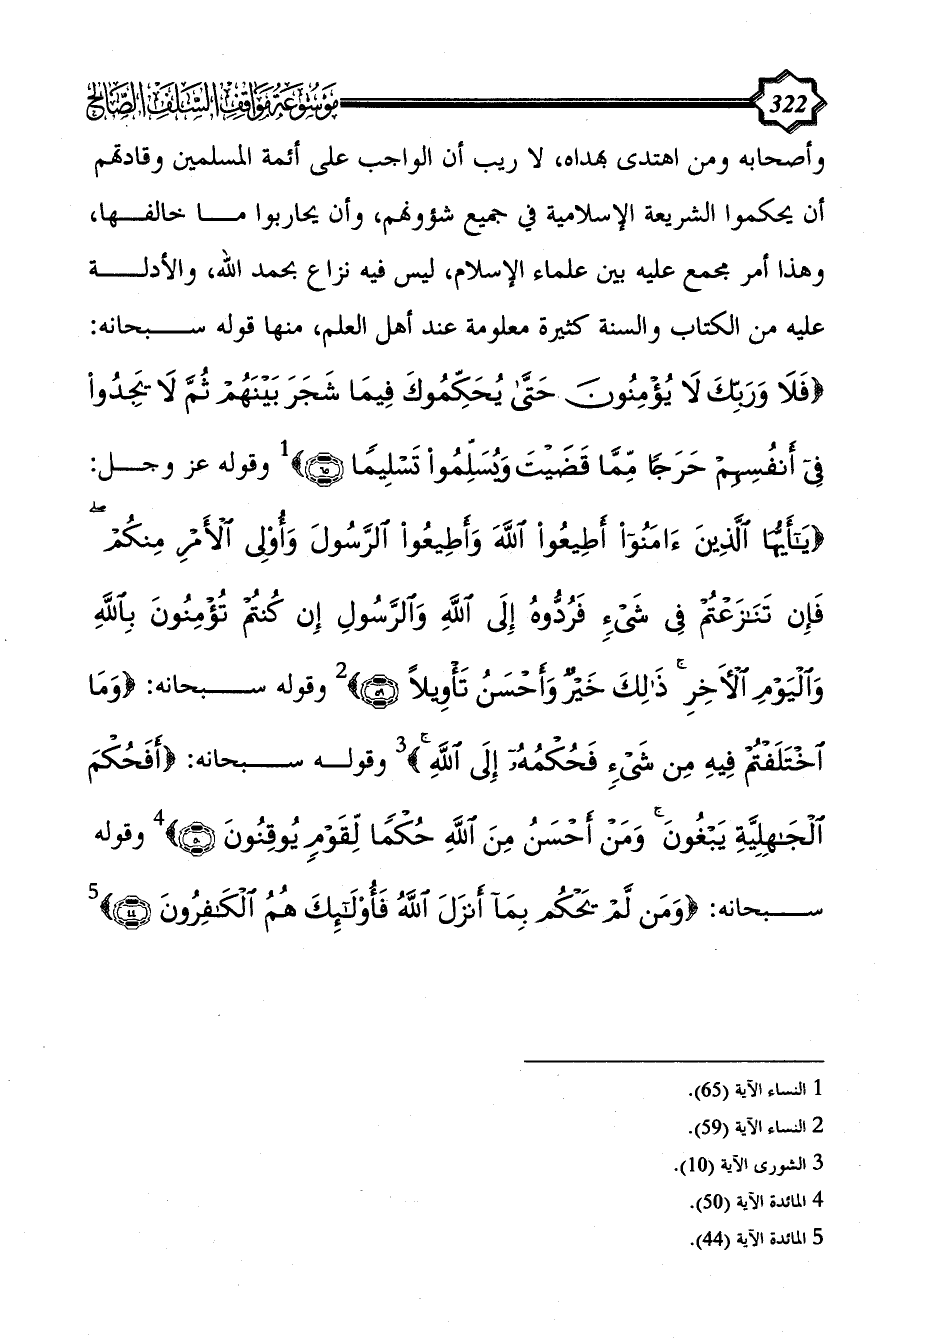 322 موسوعة مواقف السلف الصالح
وأصحابه ومن اهتدى بهداه، لا ريب أن الواجب على أئمة المسلمين وقادتهم
أن يحكموا الشريعة الإسلامية في جميع شؤونهم، وأن يحاربوا ما خالفها،
وهذا أمر مجمع عليه بين علماء الإسلام، ليس فيه نزاع بحمد الله، والأدلة
عليه من الكتاب والسنة كثيرة معلومة عند أهل العلم، منها قوله سبحانه:
﴿فَلَا وَرَبِّكَ لَا يُؤْمِنُونَ حَتَّىٰ يُحَكِّمُوكَ فِيمَا شَجَرَ بَيْنَهُمْ ثُمَّ لَا يَجِدُوا۟
فِىٓ أَنفُسِهِمْ حَرَجًا مِّمَّا قَضَيْتَ وَيُسَلِّمُوا۟ تَسْلِيمًا ﴿٦٥﴾﴾1 وقوله عز وجل:
﴿يَـٰٓأَيُّهَا ٱلَّذِينَ ءَامَنُوٓا۟ أَطِيعُوا۟ ٱللَّهَ وَأَطِيعُوا۟ ٱلرَّسُولَ وَأُو۟لِى ٱلْأَمْرِ مِنكُمْ ۖ
فَإِن تَنَـٰزَعْتُمْ فِى شَىْءٍ فَرُدُّوهُ إِلَى ٱللَّهِ وَٱلرَّسُولِ إِن كُنتُمْ تُؤْمِنُونَ بِٱللَّهِ
وَٱلْيَوْمِ ٱلْأَخِرِ ۚ ذَٰلِكَ خَيْرٌ وَأَحْسَنُ تَأْوِيلاً ﴿٥٩﴾﴾2 وقوله سبحانه: ﴿وَمَا
ٱخْتَلَفْتُمْ فِيهِ مِن شَىْءٍ فَحُكْمُهُۥٓ إِلَى ٱللَّهِ ۚ﴾3 وقوله سبحانه: ﴿أَفَحُكْمَ
ٱلْجَـٰهِلِيَّةِ يَبْغُونَ ۚ وَمَنْ أَحْسَنُ مِنَ ٱللَّهِ حُكْمًا لِّقَوْمٍ يُوقِنُونَ ﴿٥٠﴾﴾4 وقوله
سبحانه: ﴿وَمَن لَّمْ يَحْكُم بِمَآ أَنزَلَ ٱللَّهُ فَأُو۟لَـٰٓئِكَ هُمُ ٱلْكَـٰفِرُونَ ﴿٤٤﴾﴾5
1 النساء الآية (65).
2 النساء الآية (59).
3 الشورى الآية (10).
4 المائدة الآية (50).
5 المائدة الآية (44).